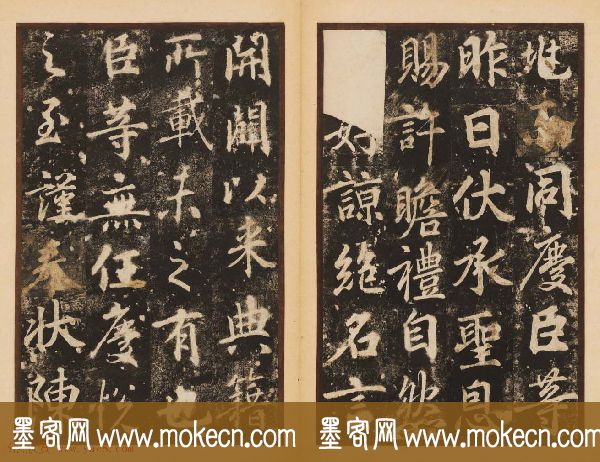 地同慶臣等
昨日伏承聖恩
賜許瞻禮自然
妙諒絶名言
開闢以来典籍
所載未之有也
臣等無任慶悅
之至謹奉狀陳
墨客网 www.mokecn.com 墨客网 www.mokecn.com